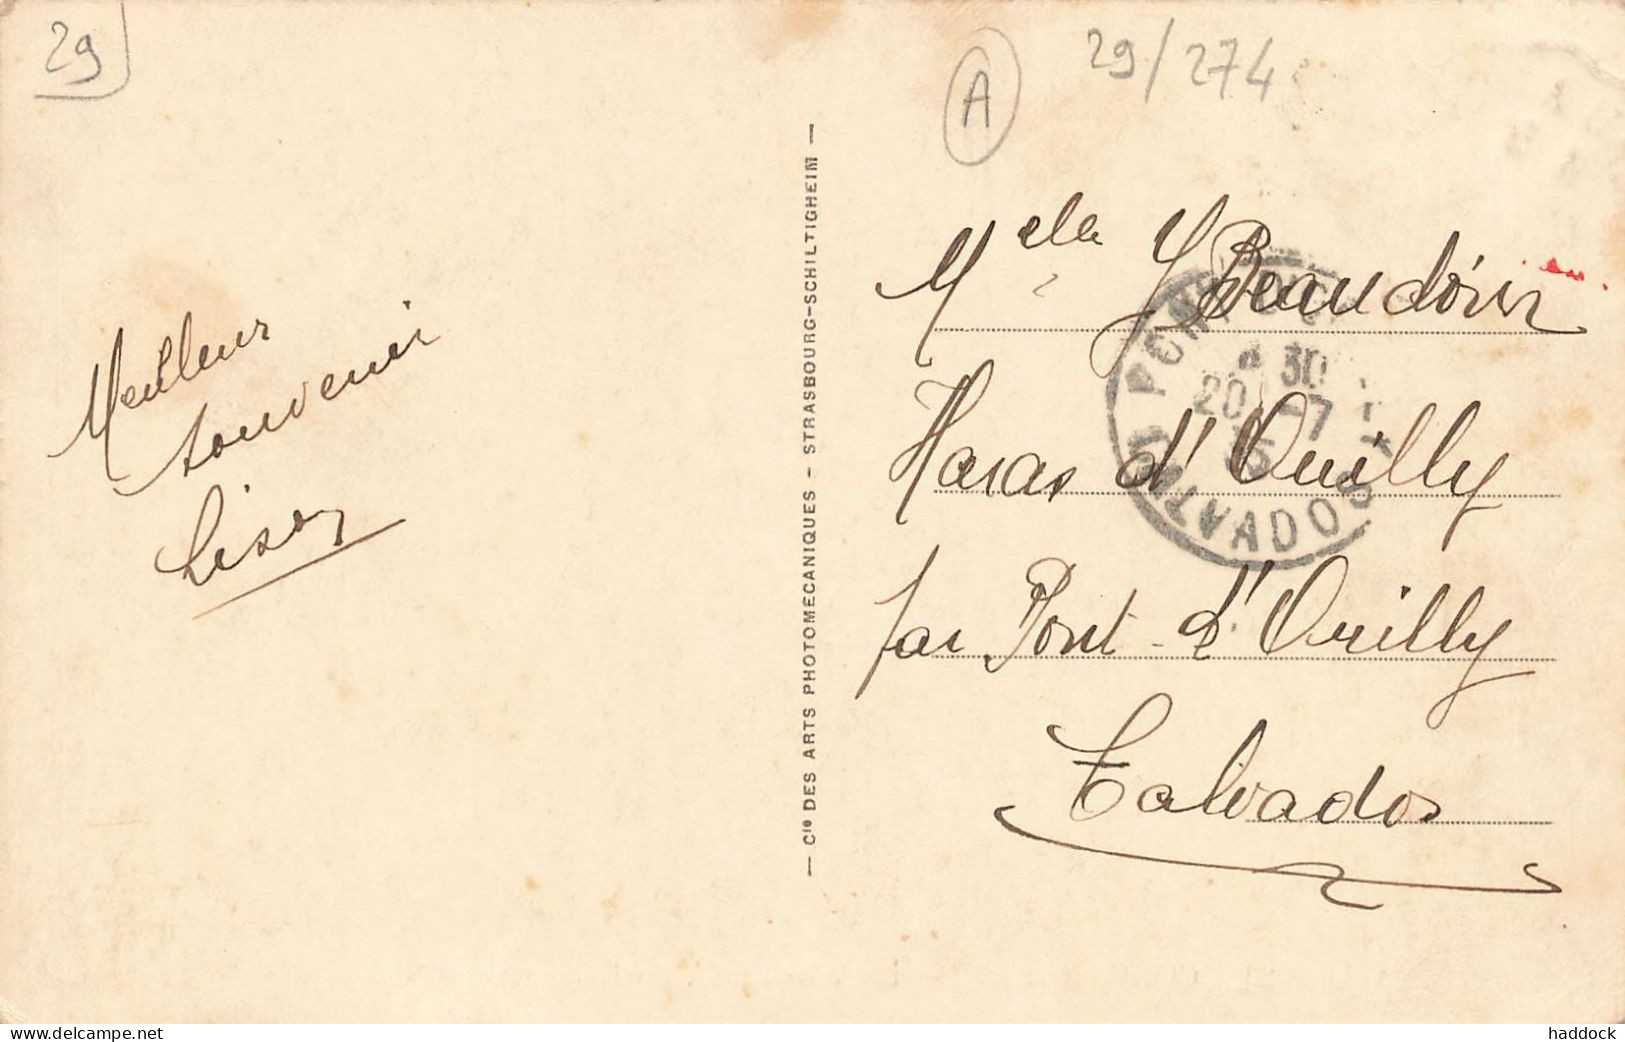 29
A
29/274
Meilleur
souvenir
Lison
— Cie DES ARTS PHOTOMÉCANIQUES - STRASBOURG-SCHILTIGHEIM —
Melle Y Beaudoin
Haras d'Ouilly
par Pont-d'Ouilly
Calvados
30
20 -7
CALVADOS
https://www.delcampe.net
haddock